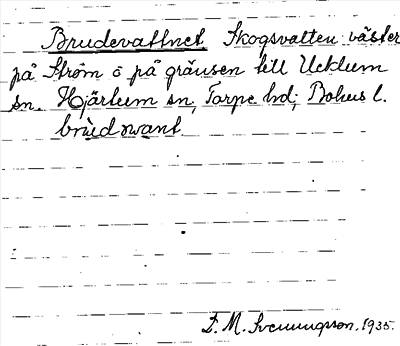 Brudevattnet Skogsvatten väster
på Ström ö på gränsen till Ucklum
sn. Hjärtum sn, Torpe hd; Bohus l.
brùedwant
D. M. Svenungsson. 1935.